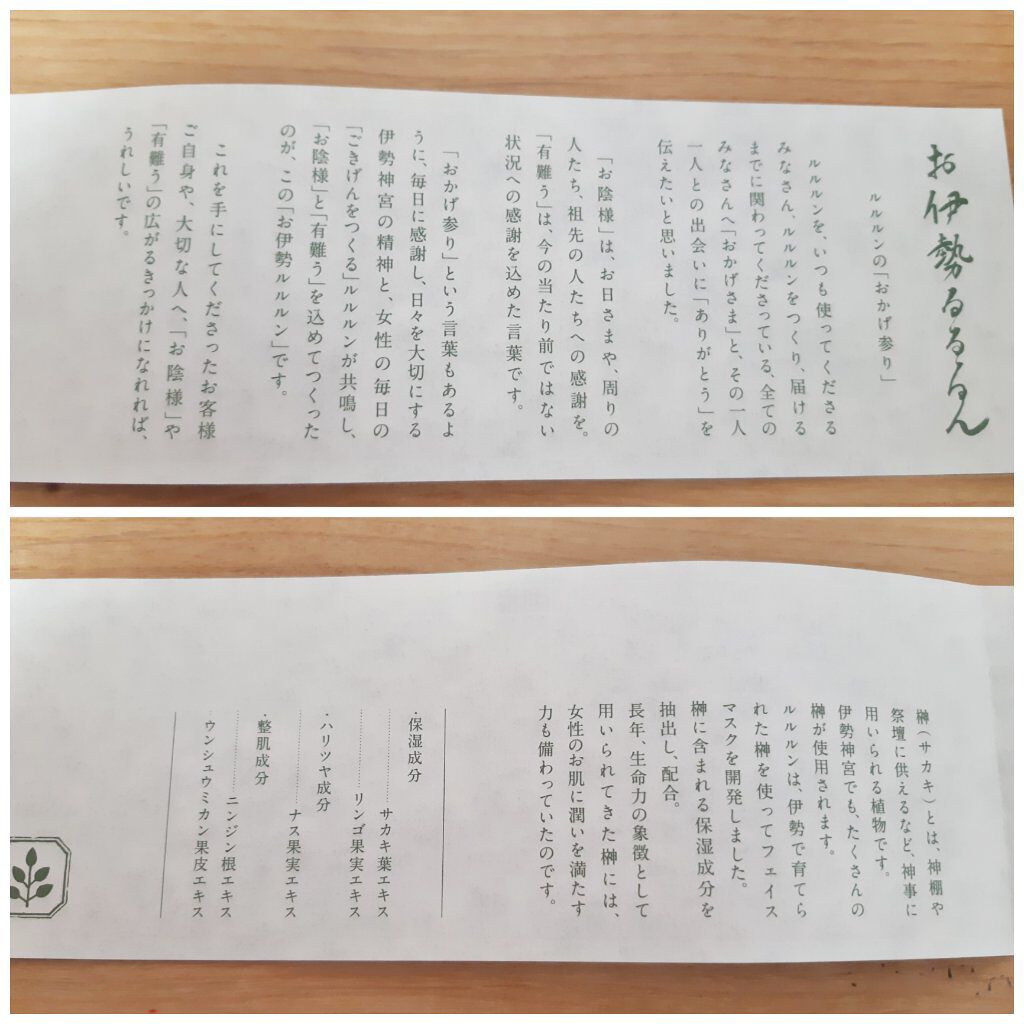 お伊勢るるるん
ルルルンの「おかげ参り」
ルルルンを、いつも使ってくださる
みなさん、ルルルンをつくり、届ける
までに関わってくださっている、全ての
みなさんへ「おかげさま」と、その一人
一人との出会いに「ありがとう」を
伝えたいと思いました。
「お陰様」は、お日さまや、周りの
人たち、祖先の人たちへの感謝を。
「有難う」は、今の当たり前ではない
状況への感謝を込めた言葉です。
「おかげ参り」という言葉もあるよ
うに、毎日に感謝し、日々を大切にする
伊勢神宮の精神と、女性の毎日の
「ごきげんをつくる」ルルルンが共鳴し、
「お陰様」と「有難う」を込めてつくった
のが、この「お伊勢ルルルン」です。
これを手にしてくださったお客様
ご自身や、大切な人へ、「お陰様」や
「有難う」の広がるきっかけになれれば、
うれしいです。
榊（サカキ）とは、神棚や
祭壇に供えるなど、神事に
用いられる植物です。
伊勢神宮でも、たくさんの
榊が使用されます。
ルルルンは、伊勢で育てら
れた榊を使ってフェイス
マスクを開発しました。
榊に含まれる保湿成分を
抽出し、配合。
長年、生命力の象徴として
用いられてきた榊には、
女性のお肌に潤いを満たす
力も備わっていたのです。
・保湿成分
サカキ葉エキス
リンゴ果実エキス
・ハリツヤ成分
ナス果実エキス
・整肌成分
ニンジン根エキス
ウンシュウミカン果皮エキス